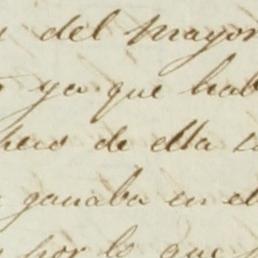 del mayor
ya que hab
pero de ella
ganaba en el
por lo que